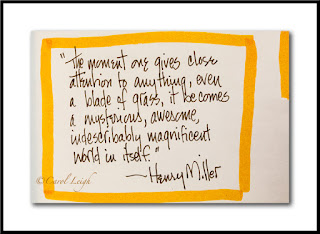 "The moment one gives close
attention to anything, even
a blade of grass, it becomes
a mysterious, awesome,
indescribably magnificent
world in itself."
~Henry Miller
©Carol Leigh